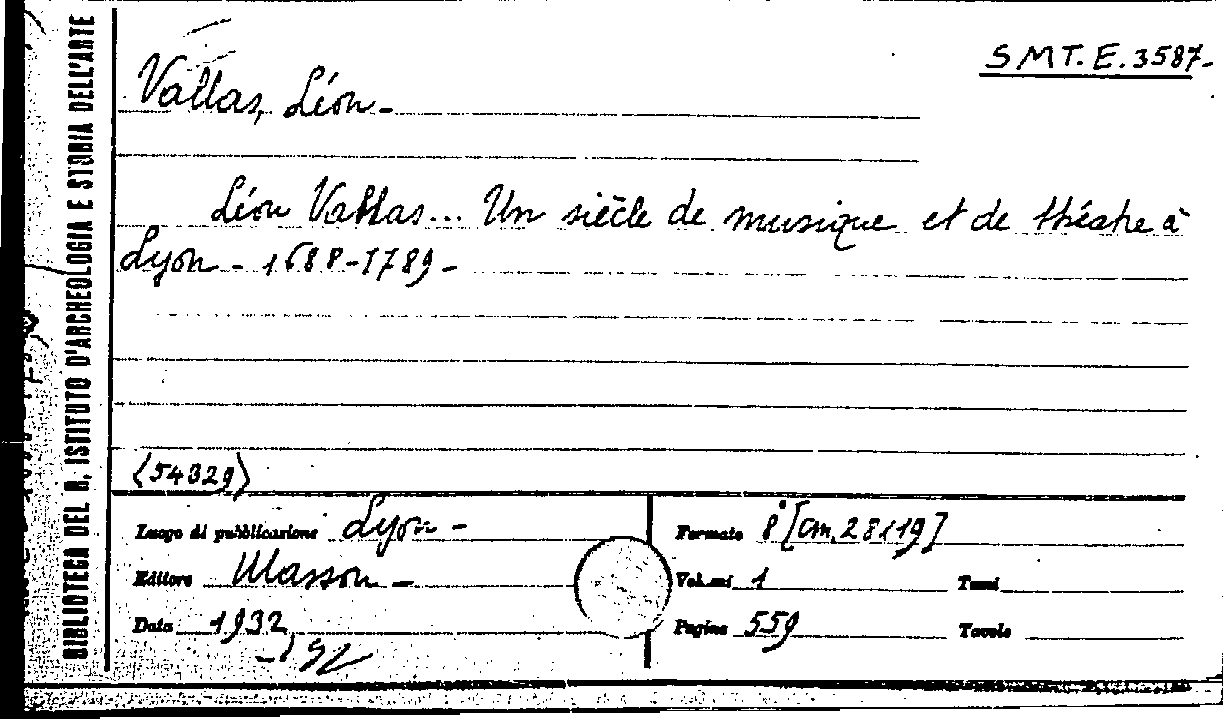 BIBLIOTECA DEL R. ISTITUTO D'ARCHEOLOGIA E STORIA DELL'ARTE
SMT. E. 3587-
Vallas, Léon -
Léon Vallas... Un siècle de musique et de théatre à
Lyon - 1688-1789 -
(54329)
Luogo di pubblicazione Lyon -
Editore Masson -
Data 1932
Formato 8° [cm. 28x19]
Volumi 1 Tomi
Pagine 559 Tavole